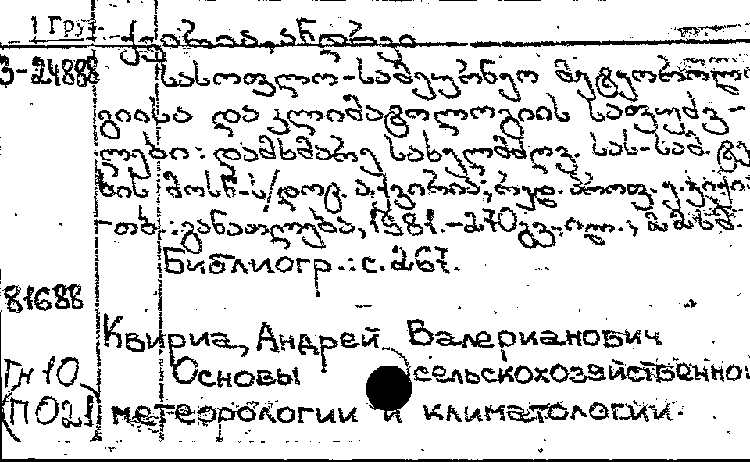 1 Груз.
ქვირია, ანდრეი
3-24888 სასოფლო-სამეურნეო მეტეოროლო
გიისა და კლიმატოლოგიის საფუძვ-
ლები: დამხმარე სახელმძღვ. სას-სამ.
მოსწ-ს/დოც. ა. ქვირია; რედ. პროფ.
-თბ.: განათლება, 1981.-270გვ., ილ.; 22სმ.
Библиогр.: с. 267.
81688
Квириа, Андрей Валерианович
Гн 10 Основы сельскохозяйственной
(П021) метеорологии и климатологии.